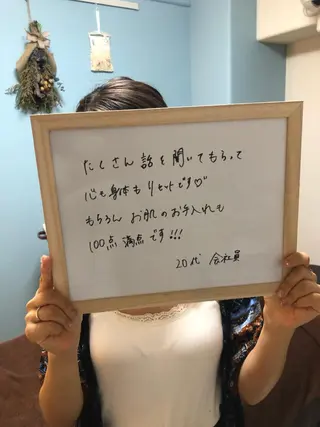 たくさん話を聞いてもらって
心も身体もリセットです♡
もちろんお肌のお手入れも
100点満点です!!!
20代 会社員